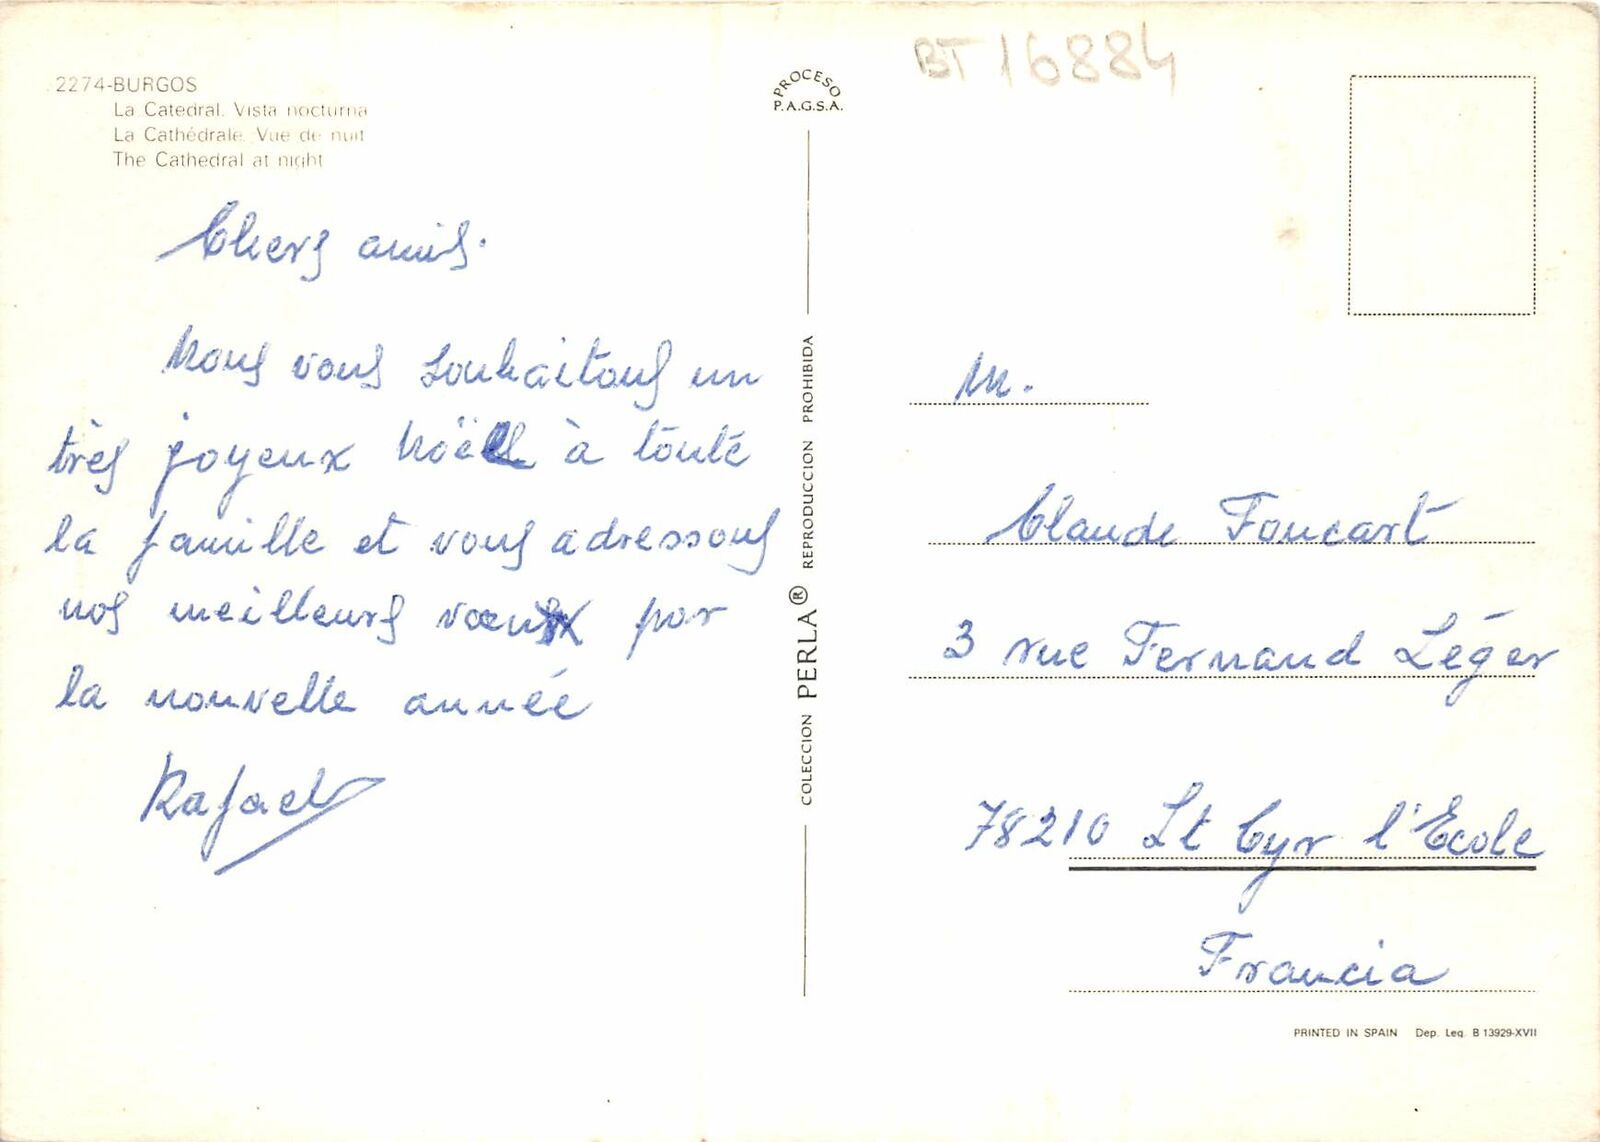 2274-BURGOS
La Catedral. Vista nocturna
La Cathédrale. Vue de nuit
The Cathedral at night
Chers amis.
Nous vous souhaitons un
très joyeux Noël à toute
la famille et vous adressons
nos meilleurs vœux par
la nouvelle année
Rafael
PROCESO
P.A.G.S.A.
COLECCION PERLA® REPRODUCCION PROHIBIDA
BT 16884
M.
Claude Foucart
3 rue Fernand Léger
78210 St Cyr l'Ecole
Francia
PRINTED IN SPAIN Dep. Leg. B 13929-XVII